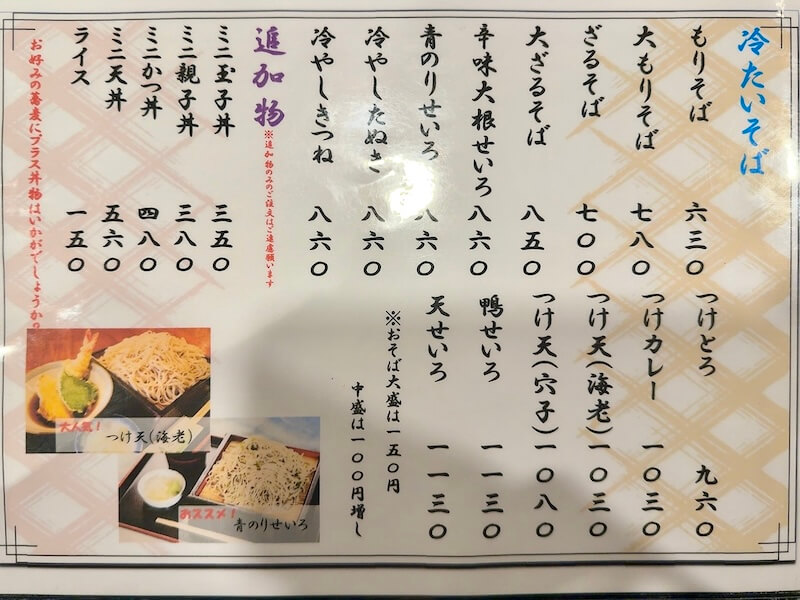 冷たいそば
もりそば 六三〇
大もりそば 七八〇
ざるそば 七〇〇
大ざるそば 八五〇
辛味大根せいろ 八六〇
青のりせいろ 八六〇
冷やしたぬき 八六〇
冷やしきつね 八六〇
つけとろ 九六〇
つけカレー 一〇三〇
つけ天(海老) 一〇三〇
つけ天(穴子) 一〇八〇
鴨せいろ 一一三〇
天せいろ 一一三〇
※おそば大盛は一五〇円
中盛は一〇〇円増し
追加物
※追加物のみのご注文はご遠慮願います
ミニ玉子丼 三五〇
ミニ親子丼 三八〇
ミニかつ丼 四八〇
ミニ天丼 五六〇
ライス 一五〇
お好みの蕎麦にプラス丼物はいかがでしょうか?
大人気!
つけ天(海老)
おススメ!
青のりせいろ